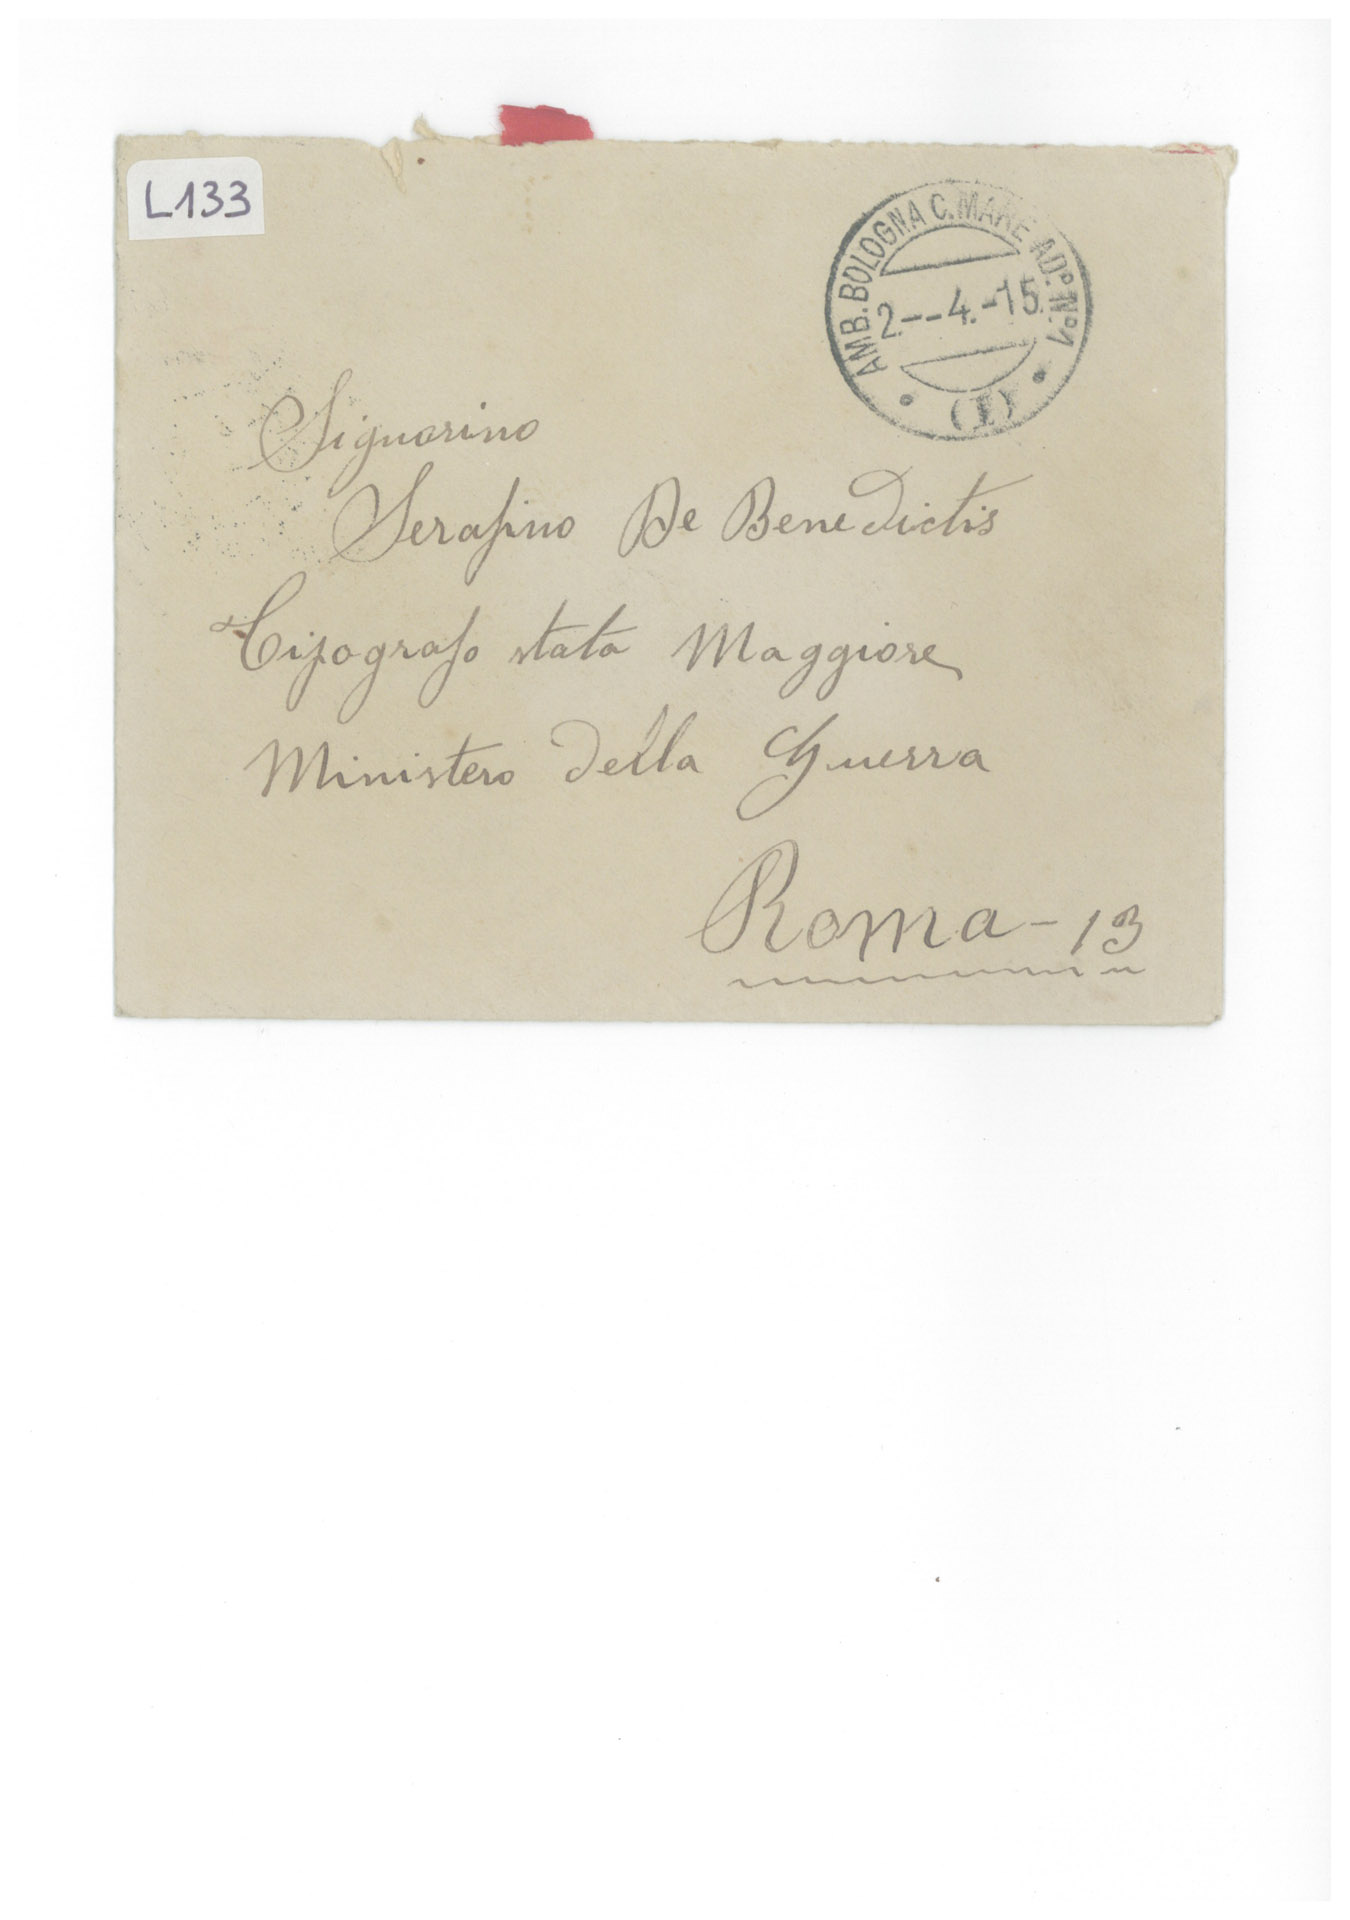 L133
AMB. BOLOGNA C. MARE AD.º Nº1
2.--4.-15.
(I)
Signorino
Serafino De Benedictis
Tipografo stato Maggiore
Ministero della Guerra
Roma - 13